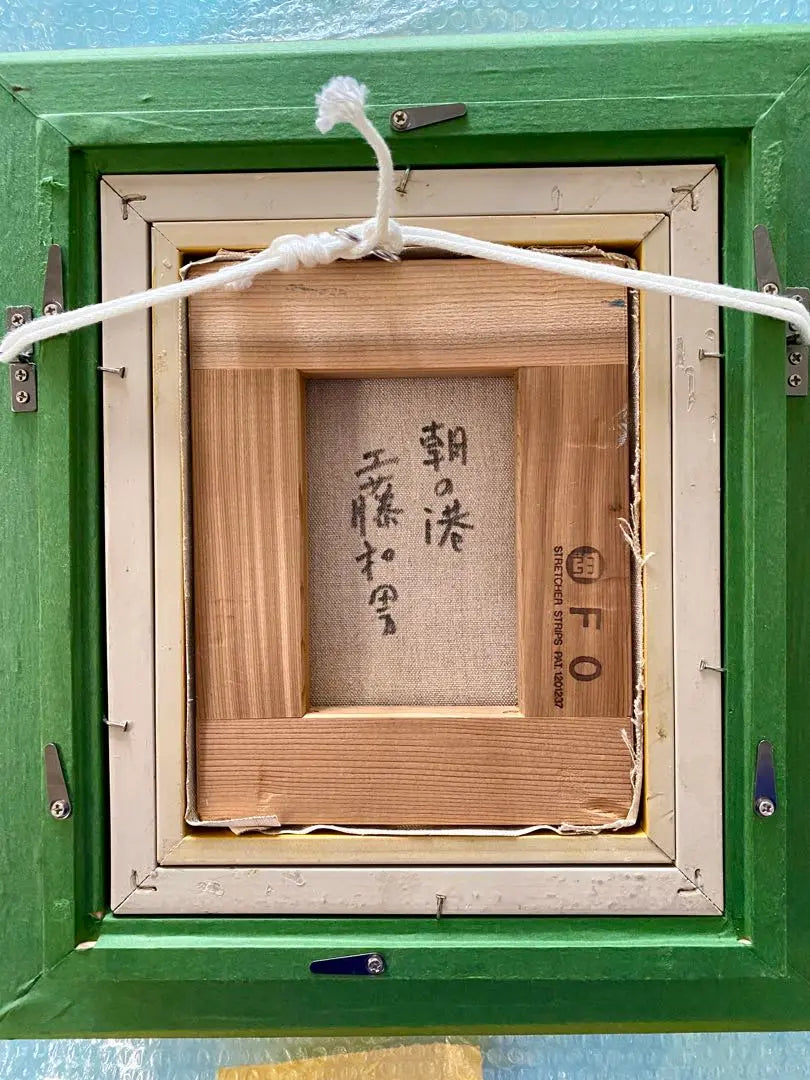 朝の港
工藤和男
F0
STRETCHER STRIPS PAT.1201237